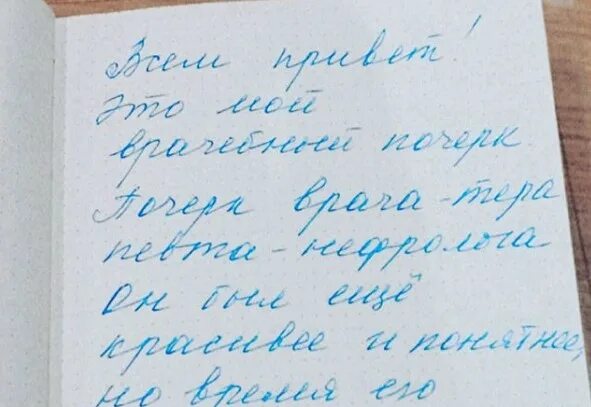 Всем привет!
это мой
врачебный почерк
Почерк врача-тера
певта-нефролога
он был ещё
красивее и понятнее,
но время его